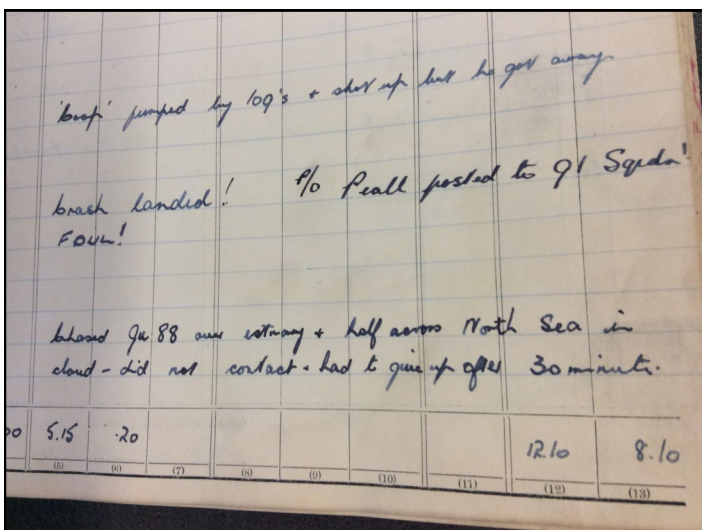 jumped by 109's + shot up but he got away.
Crash landed! P/O Peall posted to 91 Sqdn!
FOUL!
Chased Ju 88 over estuary + half across North Sea in
cloud - did not contact - had to give up after 30 minutes.
5.15 .20 12.10 8.10
(5) (6) (7) (8) (9) (10) (11) (12) (13)